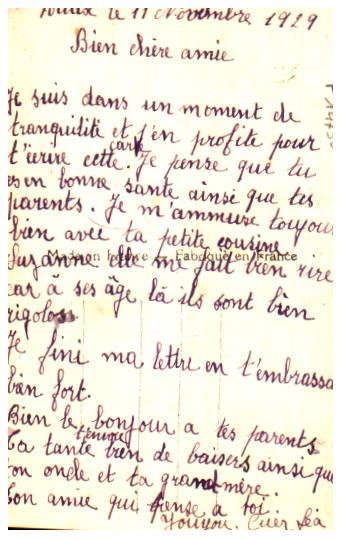 le 11 Novembre 1929
Bien chère amie
Je suis dans un moment de
tranquilité et j'en profite pour
t'ecrire cette carte. Je pense que tu
es en bonne santé ainsi que tes
parents. Je m'ammuse toujou
bien avec ta petite cousine
Made in France — Fabriqué en France
Suzanne elle me fait bien rire
car à ses âge là ils sont bien
rigolos
Je fini ma lettre en t'embrassa
bien fort.
Bien le bonjour a tes parents
Ta tante t'envoie bien de baisers ainsi que
ton oncle et ta grand mère.
Ton amie qui pense a toi.
Léa